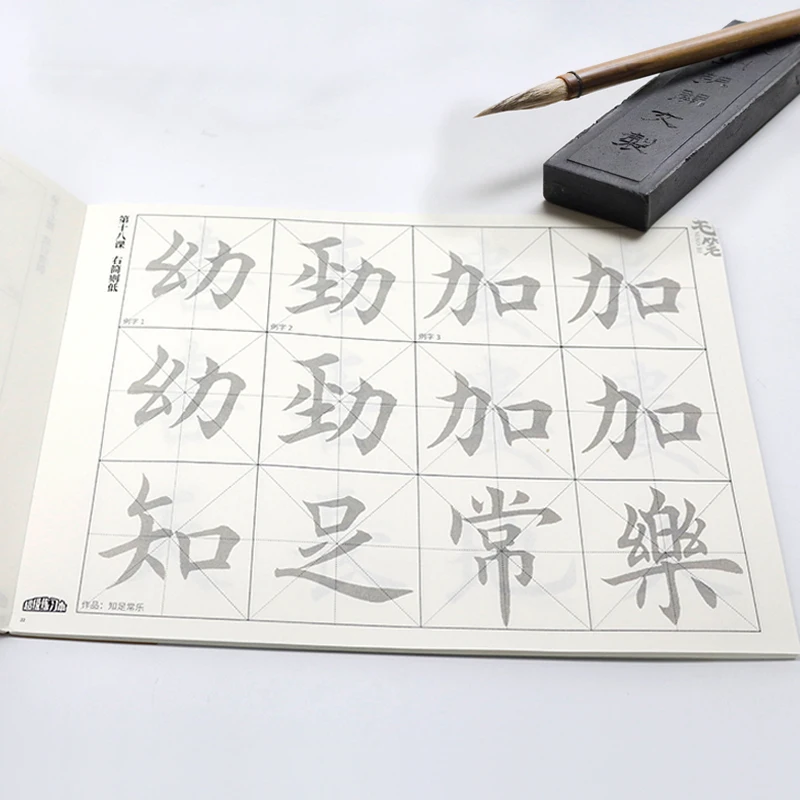 第十八课 右简则低
毛笔
幼 劲 加 加
例字 1 例字 2 例字 3
幼 劲 加 加
知 足 常 樂
作品：知足常乐
超级练习本